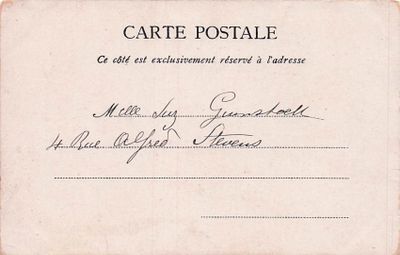 CARTE POSTALE
Ce côté est exclusivement réservé à l'adresse
Melle Suz
4 Rue Alfred Stevens